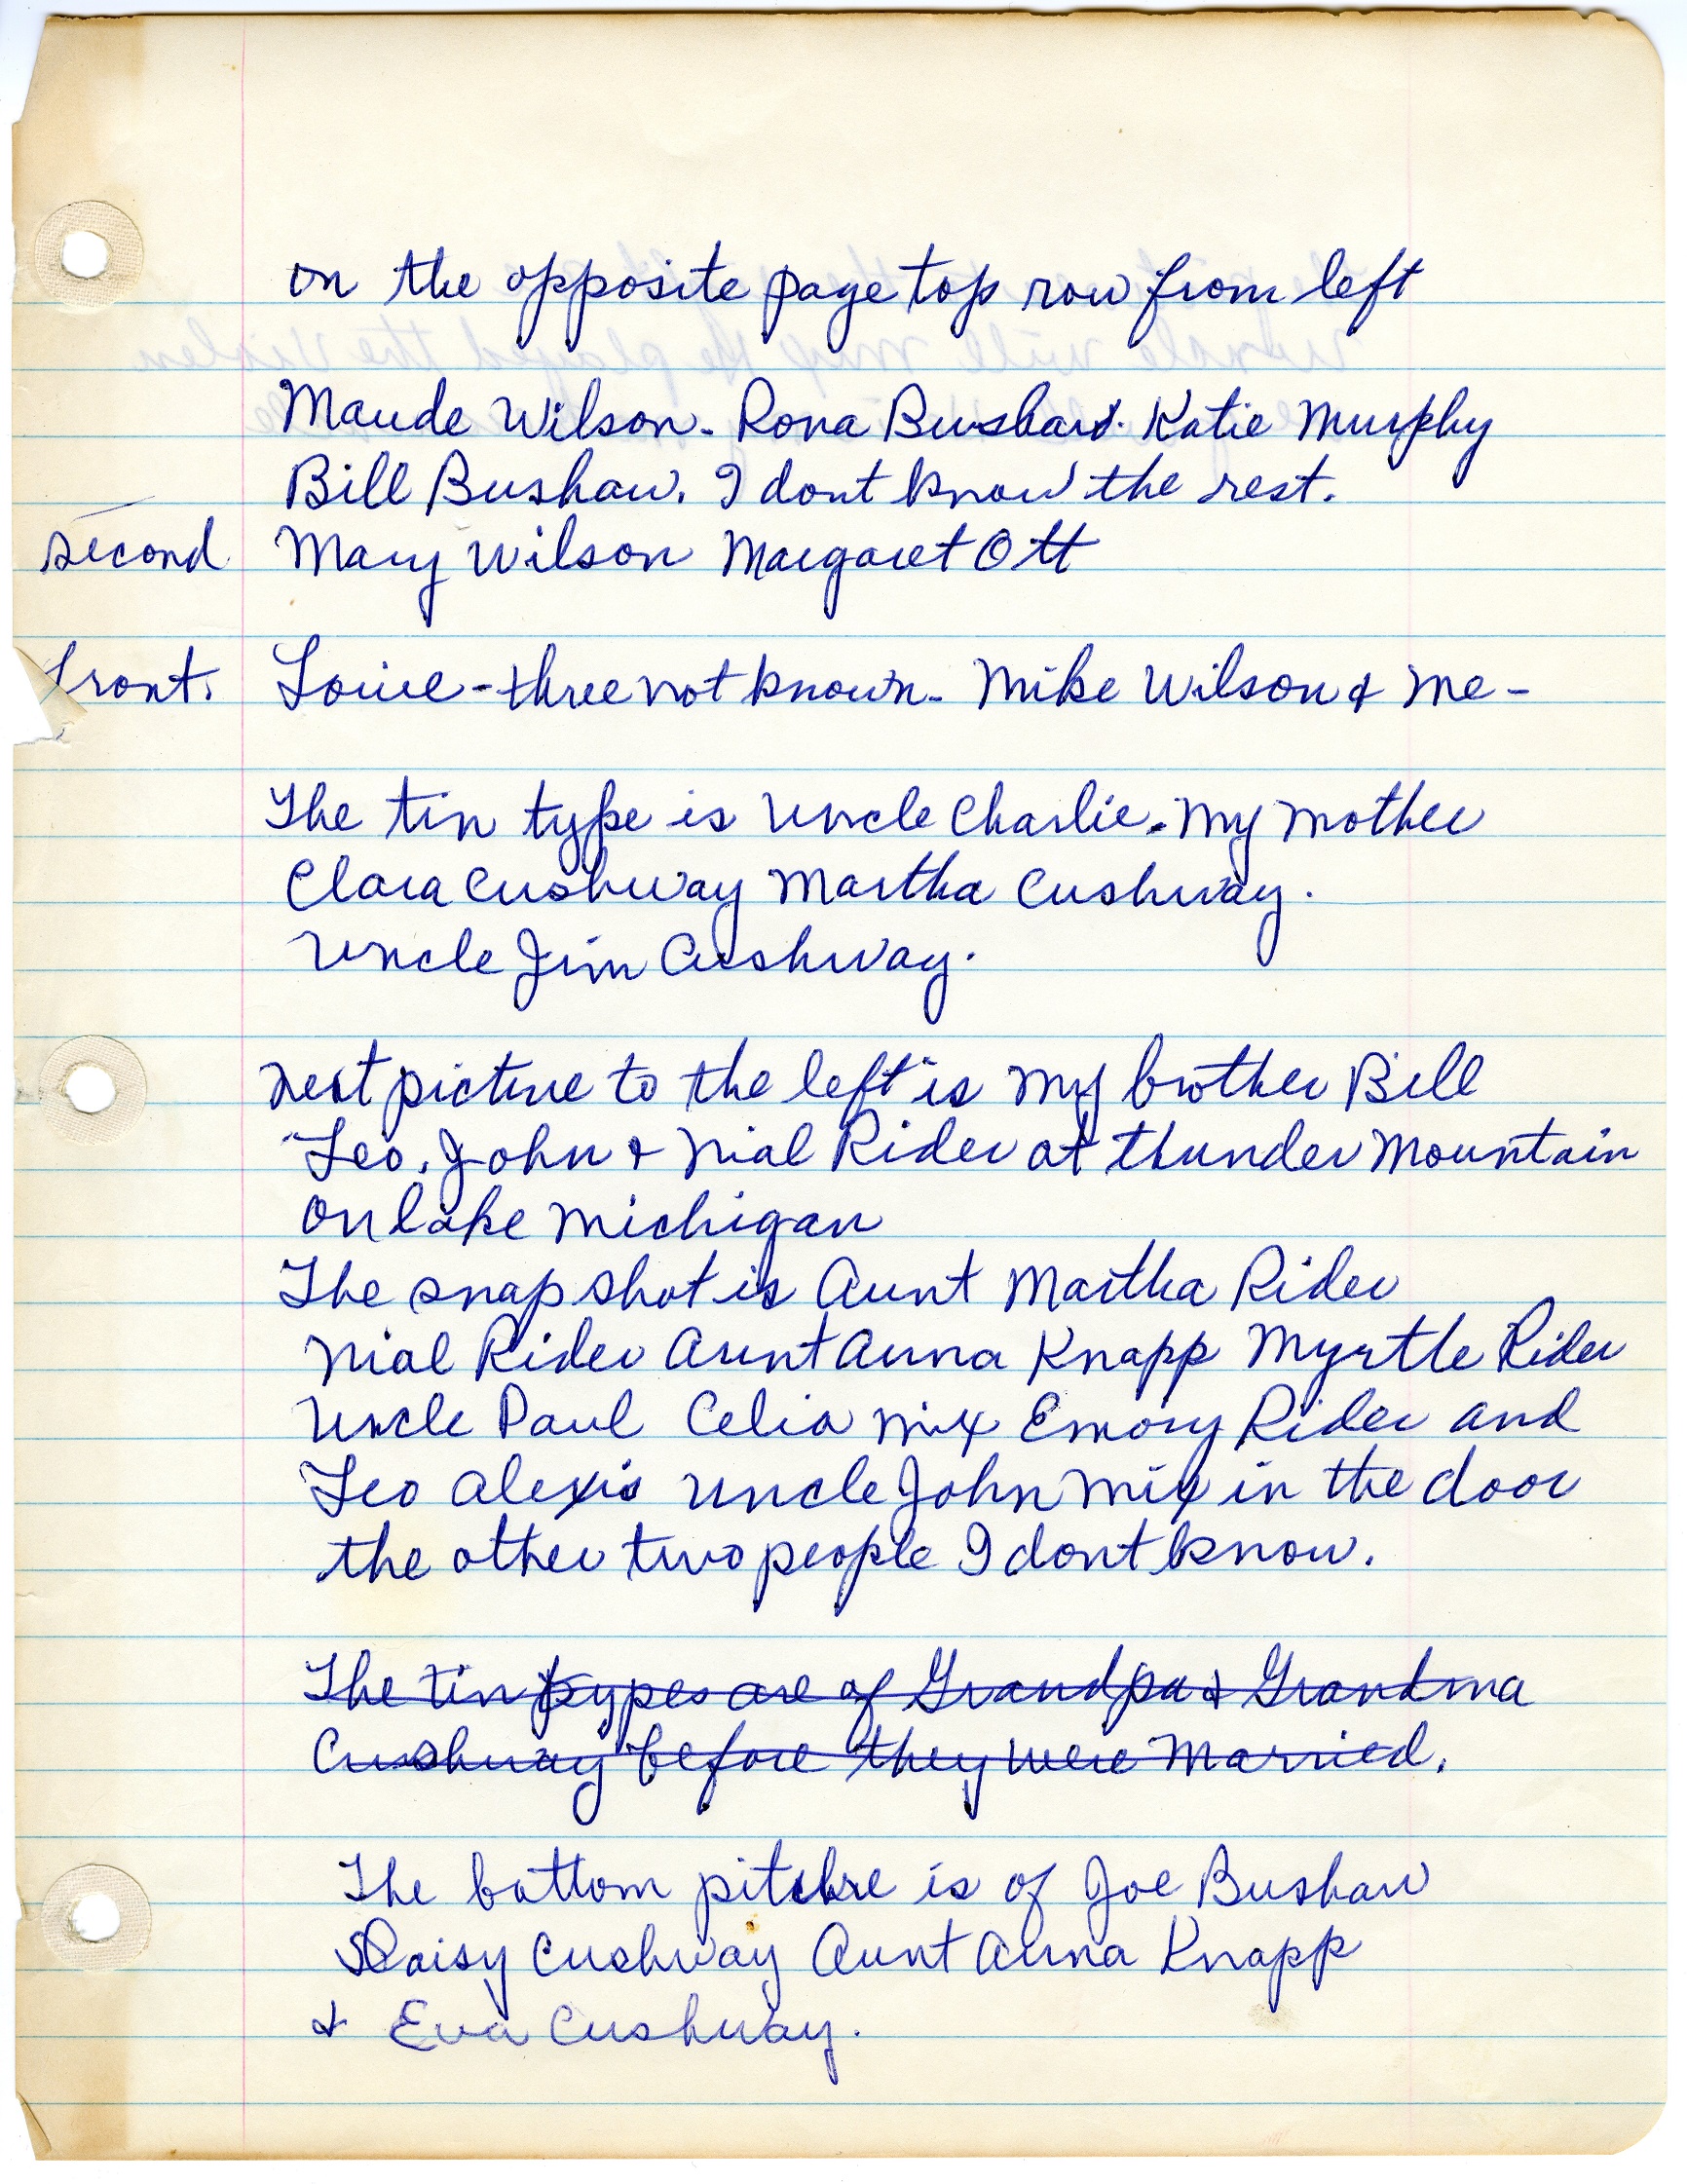 on the opposite page top row from left
Maude Wilson - Rona Bushaw. Katie Murphy
Bill Bushaw. I dont know the rest.
second Mary Wilson Margaret Ott
front. Louie - three not known - Mike Wilson & me -
The tin type is Uncle Charlie. My mother
Clara Cushway Martha Cushway.
Uncle Jim Cushway.
next picture to the left is my brother Bill
Leo, John & Nial Rider at thunder Mountain
on lake Michigan
The snap shot is Aunt Martha Rider
Nial Rider Aunt Anna Knapp Myrtle Rider
Uncle Paul Celia Mix Emory Rider and
Leo Alexis Uncle John Mix in the door
the other two people I dont know.
The tin types are of Grandpa & Grandma
Cushway before they were Married.
The bottom pitchre is of Joe Bushaw
Daisy Cushway Aunt Anna Knapp
& Eva Cushway.